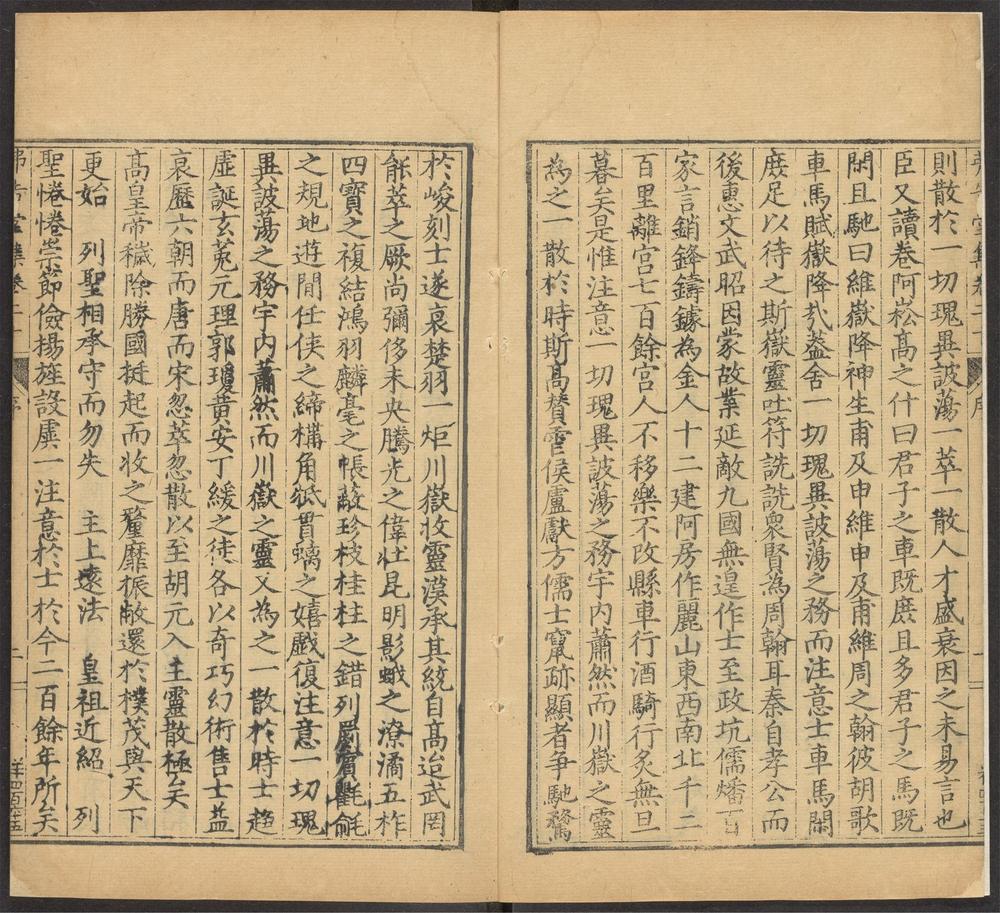 則散於一切瑰異詖蕩一萃一散人才盛衰因之未易言也
臣又讀卷阿崧高之什曰君子之車既庶且多君子之馬既
閑且馳曰維嶽降神生甫及申維申及甫維周之翰彼胡歌
車馬賦嶽降哉蓋舍一切瑰異詖蕩之務而注意士車馬閑
庶足以待之斯嶽靈吐符詵詵衆賢為周翰耳秦自孝公而
後惠文武昭因蒙故業延敵九國無遑作士至政坑儒燔百
家言銷鋒鑄鐻為金人十二建阿房作麗山東西南北千二
百里離宮七百餘宮人不移樂不改縣車行酒騎行炙無旦
暮矣是惟注意一切瑰異詖蕩之務宇内蕭然而川嶽之靈
為之一散於時斯高贊霅侯盧獻方儒士竄跡顯者爭馳騖
於峻刻士遂哀楚羽一炬川嶽收靈漢承其統自高迨武罔
能萃之厥尚彌侈未央騰光之偉壯昆明影蛾之潦潏五柞
四寶之複結鴻羽麟毫之帳敞珍枝桂柱之錯列罽賓氍毹
之規地遊閒任俠之締構角觝貫螭之嬉戲復注意一切瑰
異詖蕩之務宇内蕭然而川嶽之靈又為之一散於時士趨
虛誕玄菟元理郭瓊黄安丁緩之徒各以奇巧幻術售士益
哀歷六朝而唐而宋忽萃忽散以至胡元入主靈散極矣
高皇帝穢除勝國挺起而收之釐靡振敝還於樸茂與天下
更始 列聖相承守而勿失 主上遠法 皇祖近紹 列
聖惓惓崇節儉揚旌設虡一注意於士於今二百餘年所矣